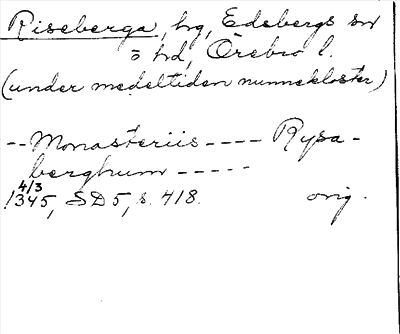 Riseberga, hg, Edsbergs sn
o hd, Örebro l.
(under medeltiden nunnekloster)
-- Monasteriis ---- Rysa-
berghum -----
4/3
1345, SD5, s. 418. orig.